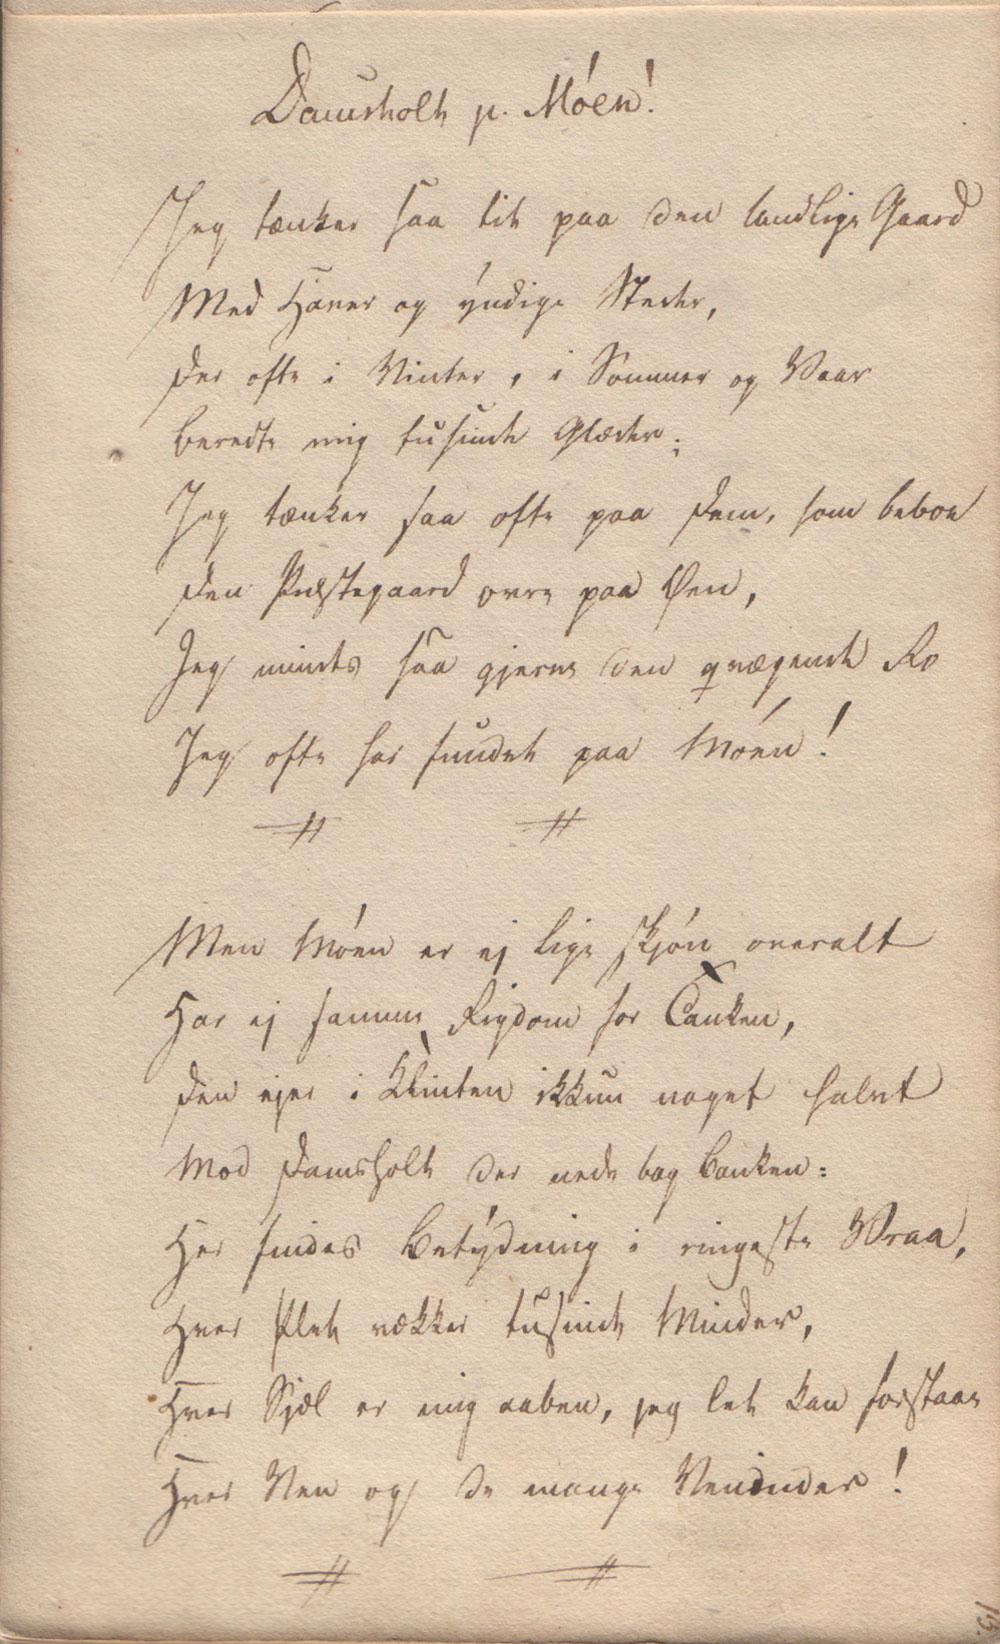 Damsholte p. Møen!
Jeg tænker saa tit paa den landlige Gaard
Med Haver og yndige Steder,
Der ofte i Vinter, i Sommer og Vaar
Beredte mig tusinde Glæder;
Jeg tænker saa ofte paa Dem, som beboe
Den Præstegaard ovre paa Øen,
Jeg mindes saa gjerne den qvægende Ro
Jeg ofte har fundet paa Møen!
Men Møen er ej lige skjøn overalt
Har ej samme Rigdom for Tanken,
Den ejer i Klinten ikkun noget halvt
Mod Damsholte der nede bag Banken:
Her findes Betydning i ringeste Vraa,
Hver Plet vækker tusinde Minder,
Hver Sjæl er mig aaben, jeg let kan forstaae
Hver Ven og de mange Veninder!